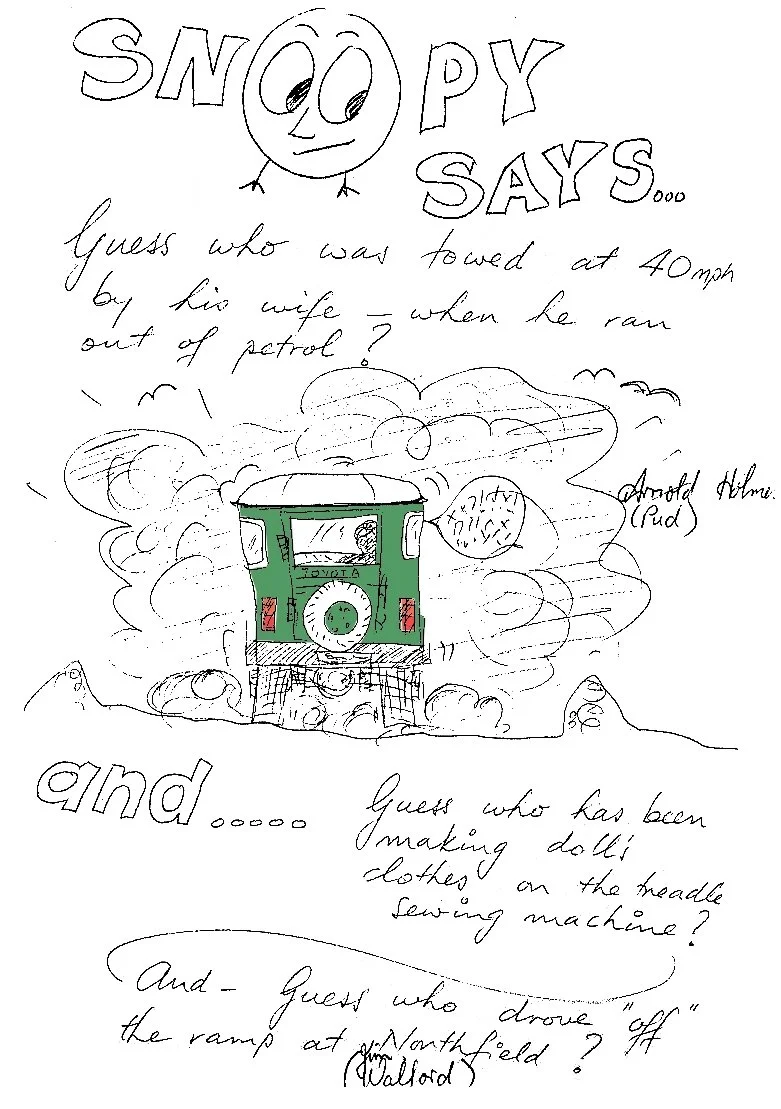 SNOOPY
SAYS...
Guess who was towed at 40mph
by his wife – when he ran
out of petrol?
Arnold Holme.
(Pud)
TOYOTA
and.....
Guess who has been
making doll's
clothes on the treadle
sewing machine?
And – Guess who drove "off"
the ramp at Northfield?
(Jim
Walford)